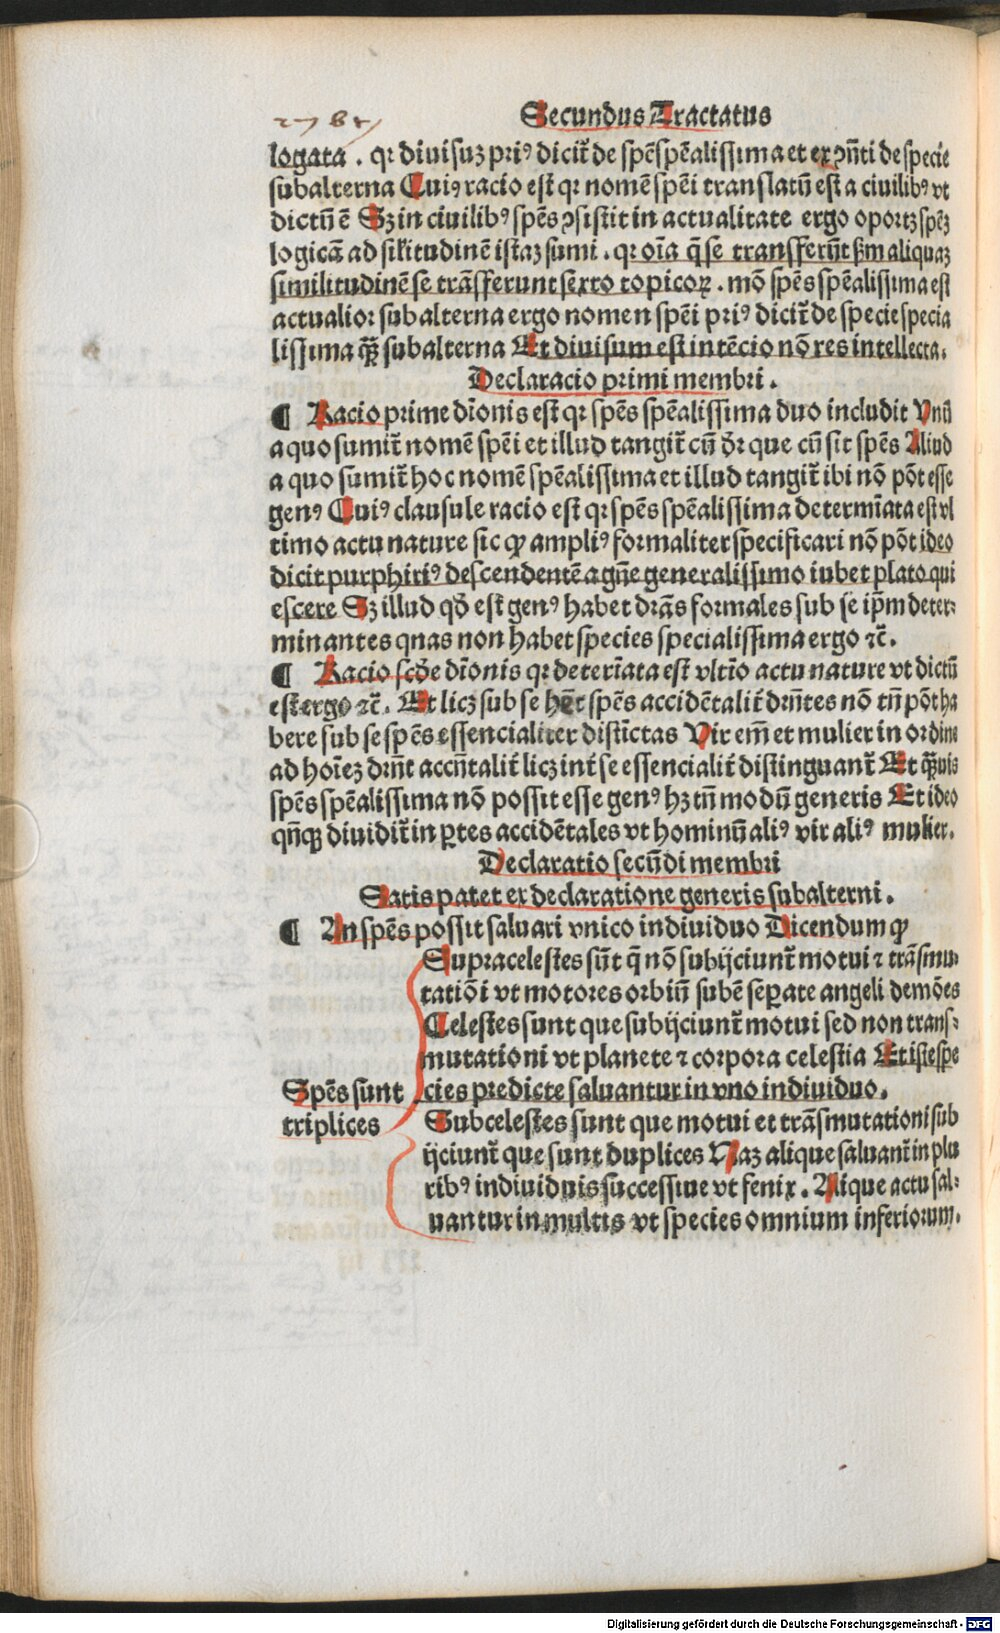 Secundus Tractatus
logata . qꝛ diuisuꝫ priꝰ dicit᷑ de spēspēalissima et ex ꝯn̄ti de specie
subalterna Cuiꝰ racio est qꝛ nomē spēi translatū est a ciuilibꝰ vt
dictū ē Sꝫ in ciuilibꝰ spēs ꝯsistit in actualitate ergo oportꝫ spēꝫ
logicā ad sil̓itudinē istaꝫ sumi . qꝛ oīa q̄ se transferūt ẜm aliquaꝫ
similitudinē se trāsferunt sexto topicoꝝ . mō spēs spēalissima est
actualior subalterna ergo nomen spēi priꝰ dicit᷑ de specie specia
lissima qꝫ̄ subalterna Et diuisum est intēcio nō res intellecta.
Declaracio primi membri .
¶ Racio prime dīonis est qꝛ spēs spēalissima duo includit Vnū
a quo sumit᷑ nomē spēi et illud tangit᷑ cū dr̄ que cū sit spēs Aliud
a quo sumit᷑ hoc nomē spēalissima et illud tangit᷑ ibi nō pōt esse
genꝰ Cuiꝰ clausule racio est qꝛ spēs spēalissima determīata est vl
timo actu nature sic ꝙ ampliꝰ formaliter specificari nō pōt ideo
dicit purphiriꝰ descendentē a gn̄e generalissimo iubet plato qui
escere Sꝫ illud qd̓ est genꝰ habet dr̄as formales sub se ip̄m deter⸗
minantes qnas non habet species specialissima ergo ⁊c̄.
¶ Racio scd̓e dīonis qꝛ deterīata est vltīo actu nature vt dictū
est ergo ⁊c̄. Et licꝫ sub se hēt spēs accidētalit᷑ dr̄ntes nō tn̄ pōt ha
bere sub se spēs essencialiter distīctas Vir em̄ et mulier in ordine
ad hoīeꝫ dr̄nt accn̄talit᷑ licꝫ int᷑ se essencialit᷑ distinguant᷑ Et qꝫ̄uis
spēs spēalissima nō possit esse genꝰ hꝫ tn̄ modū generis Et ideo
qn̄qꝫ diuidit᷑ in ꝑtes accidētales vt hominū aliꝰ vir aliꝰ mulier.
Declaratio secūdi membri
Satis patet ex declaratione generis subalterni .
¶ An spēs possit saluari vnico indiuiduo Dicendum ꝙ
Supracelestes sūt q̄ nō subijciunt᷑ motui ⁊ trāsmu⸗
tatiōi vt motores orbiū subē seꝑate angeli demōes
Celestes sunt que subijciunt᷑ motui sed non trans⸗
mutationi vt planete ⁊ corpora celestia Et iste spe
Spēs sunt cies predicte saluantur in vno indiuiduo.
triplices Subcelestes sunt que motui et trāsmutationi sub
ijciunt᷑ que sunt duplices Naꝫ alique saluant᷑ in plu
ribꝰ indiuiduis successiue vt fenix . Alique actu sal⸗
uantur in multis vt species omnium inferiorum.
Digitalisierung gefördert durch die Deutsche Forschungsgemeinschaft - DFG